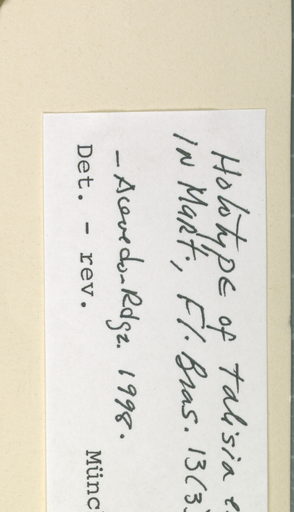 Holotype of Talisia
in Mart., Fl. Bras. 13(3)
- Acevedo-Rdgz. 1998.
Det. - rev. Münc